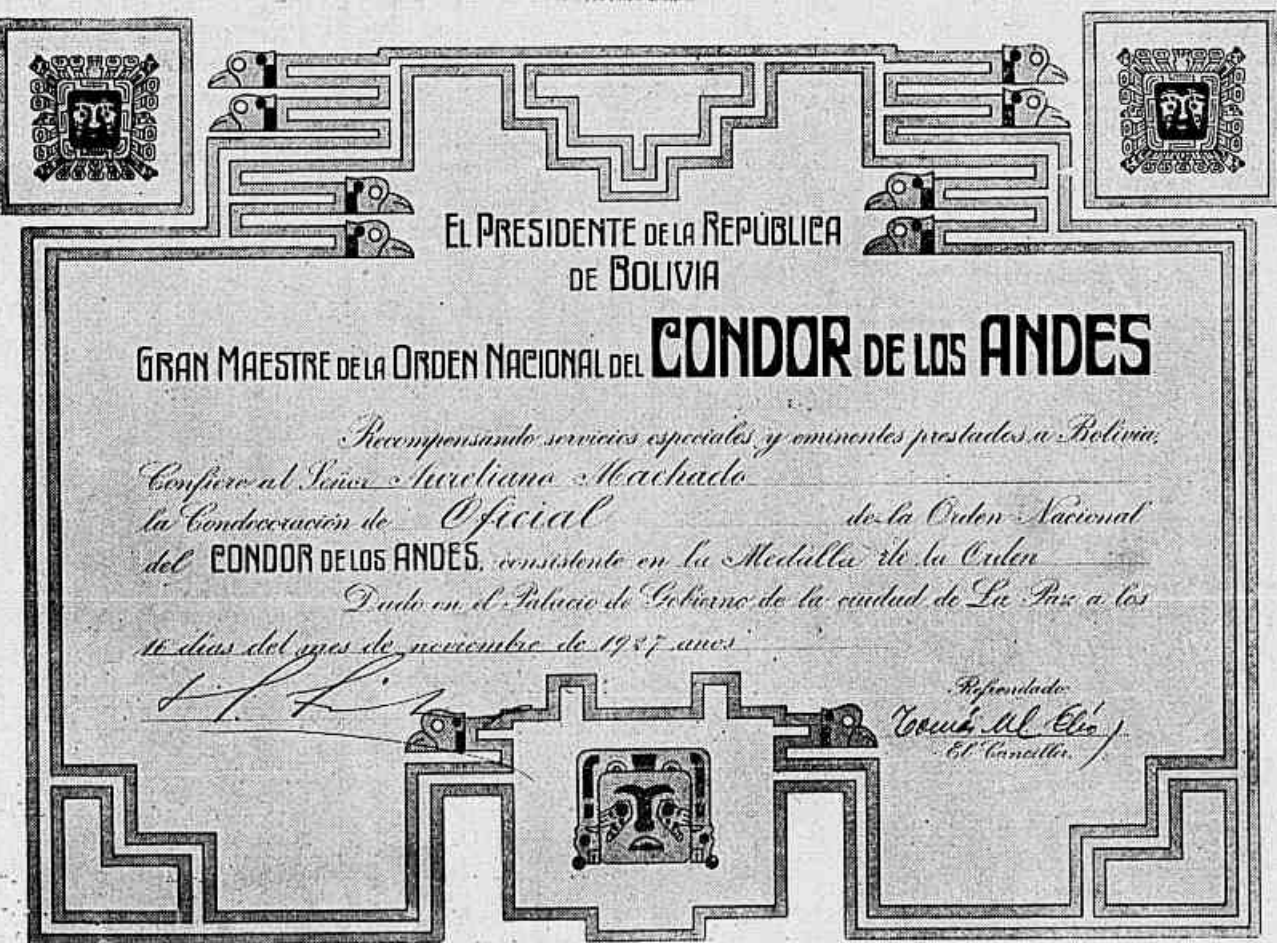 EL PRESIDENTE DE LA REPÚBLICA
DE BOLIVIA
GRAN MAESTRE DE LA ORDEN NACIONAL DEL CONDOR DE LOS ANDES
Recompensando servicios especiales y eminentes prestados a Bolivia,
Confiero al Señor Aureliano Machado
la Condecoración de Oficial de la Orden Nacional
del CONDOR DE LOS ANDES, consistente en la Medalla de la Orden
Dado en el Palacio de Gobierno de la ciudad de La Paz a los
16 días del mes de noviembre de 1927 anos
Refrendado:
Tomás M. Elío
El Canciller.